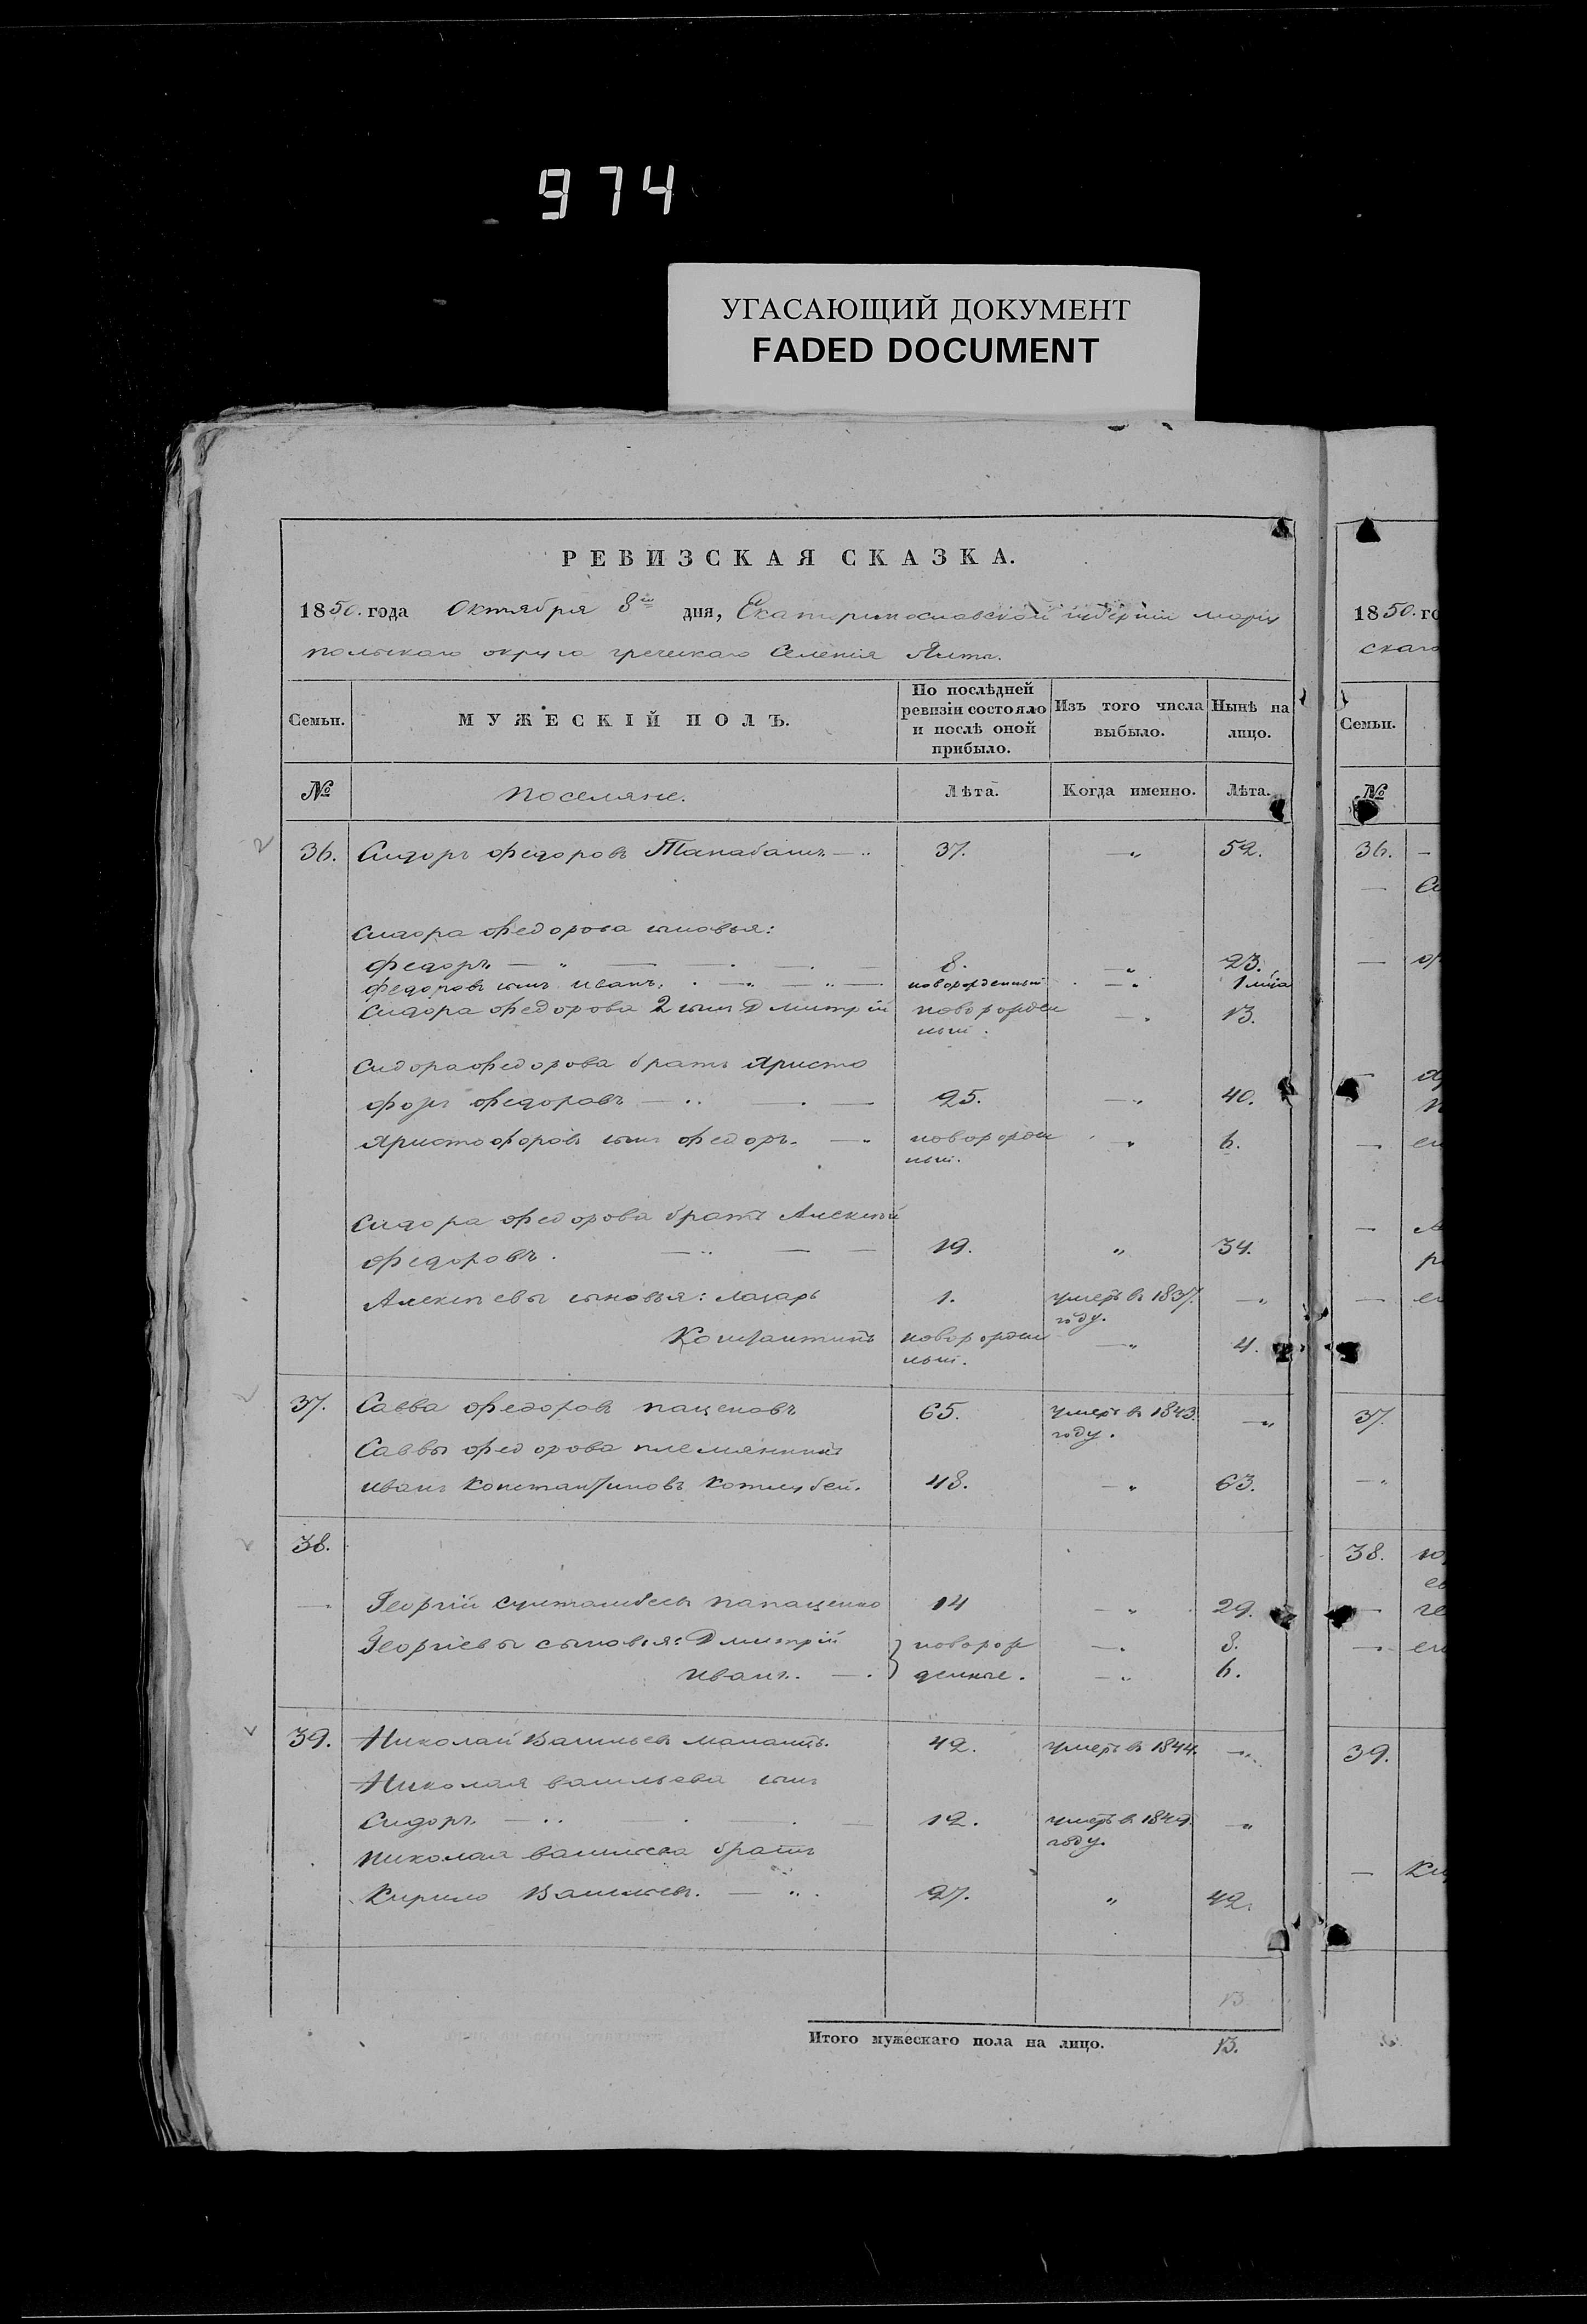 974
УГАСАЮЩИЙ ДОКУМЕНТ
FADED DOCUMENT
РЕВИЗСКАЯ СКАЗКА.
1850. года Октября 8го дня, Екатеринославской губерніи Маріу
польскаго округа греческаго Селенія Ялты.
Семьи. МУЖЕСКІЙ ПОЛЪ. По послѣдней ревизіи состояло и послѣ оной прибыло. Изъ того числа выбыло. Нынѣ на лицо.
№ поселяне. Лѣта. Когда именно. Лѣта.
36. Сидоръ федоровъ 37. — „ 52.
Сидора федорова сыновья:
федоръ. 8. — „ 23.
федоровъ сынъ иванъ. новорожденный — „ 1 м͠ца
Сидора федорова 2 сынъ Дмитрій новорожден — „ 13.
ный.
Сидора федорова братъ Христо
форъ федоровъ 25. — „ 40.
Христофоровъ сынъ федоръ. новорожден „ 6.
ный.
Сидора федорова братъ Алексѣй
федоровъ. 19. „ 34.
Алексѣевы сыновья: лазарь 1. умеръ въ 1837. — „
году.
Константинъ новорожден — „ 4.
ный.
37. Савва федоровъ пащеновъ 65. умеръ въ 1843. — „
году.
Саввы федорова племянникъ
иванъ Константиновъ Котлубей. 48. — „ 63.
38.
— Георгій папащенко 14 — „ 29.
Георгіевы сыновья: Дмитрій } новорож — „ 8.
иванъ. денные. — „ 6.
39. Николай Васильевъ 42. умеръ въ 1844. — „
Николая васильева сынъ
Сидоръ. 12. умеръ въ „
году.
Николая васильева братъ
Кирило Васильевъ. 27. „ 42.
13
Итого мужескаго пола на лицо. 13.
1850. го
скаго
Семьи.
№
36.
37.
38.
39.